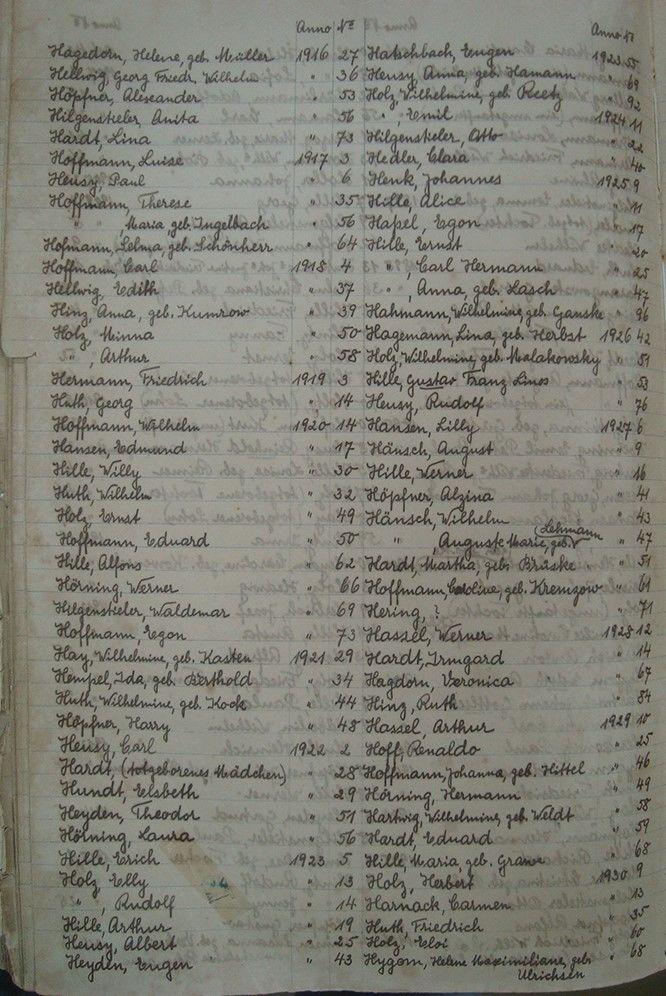 Anno No
Hagedorn, Helene, geb. Müller 1916 27
Hellwig, Georg Friedr. Wilhelm " 36
Höpfner, Alexander " 53
Hilgenstieler, Anita " 56
Hardt, Lina " 73
Hoffmann, Luise 1917 3
Heusy, Paul " 6
Hoffmann, Therese " 35
" , Maria, geb. Ingelbach " 56
Hofmann, Selma, geb. Schönherr " 64
Hoffmann, Carl 1918 4
Hellwig, Edith " 37
Hinz, Anna, geb. Kumrow " 39
Holz, Minna " 50
" , Arthur " 58
Hermann, Friedrich 1919 3
Huth, Georg " 14
Hoffmann, Wilhelm 1920 14
Hansen, Edmund " 17
Hille, Willy " 30
Huth, Wilhelm " 32
Holz, Ernst " 49
Hoffmann, Eduard " 50
Hille, Alfons " 62
Hörning, Werner " 66
Hilgenstieler, Waldemar " 69
Hoffmann, Egon " 73
Hay, Wilhelmine, geb. Kasten 1921 29
Hempel, Ida, geb. Berthold " 34
Huth, Wilhelmine, geb. Kock " 44
Höpfner, Harry " 48
Heusy, Carl 1922 2
Hardt, (totgeborenes Mädchen) " 28
Hundt, Elsbeth " 29
Heyden, Theodor " 51
Hörning, Laura " 56
Hille, Erich 1923 5
Holz, Elly " 13
" , Rudolf " 14
Hille, Arthur " 19
Heusy, Albert " 25
Heyden, Eugen " 43
Anno No
Hatschbach, Eugen 1923 55
Heusy, Anna, geb. Hamann " 69
Holz, Wilhelmine, geb. Reetz " 92
" , Emil 1924 11
Hilgenstieler, Otto " 22
Hedler, Clara " 40
Henk, Johannes 1925 9
Hille, Alice " 11
Haßel, Egon " 17
Hille, Ernst " 20
" Carl Hermann " 25
" , Anna, geb. Hasch " 47
Hahmann, Wilhelmine, geb. Ganske " 96
Hagemann, Lina, geb. Herbst 1926 42
Holz, Wilhelmine, geb. Malakowsky " 51
Hille, Gustav Franz Linos " 53
Heusy, Rudolf " 76
Hansen, Lilly 1927 6
Hänsch, August " 9
Hille, Werner " 16
Höpfner, Alzina " 41
Hänsch, Wilhelm " 43
" Auguste Marie, geb. (Lehmann " 47
Hardt, Martha, geb. Brüske " 51
Hoffmann, Caroline, geb. Kremzow " 61
Hering, ? " 71
Hassel, Werner 1928 12
Hardt, Irmgard " 14
Hagdorn, Veronica " 67
Hinz, Ruth " 84
Hassel, Arthur 1929 10
Hoff, Renaldo " 25
Hoffmann, Johanna, geb. Hittel " 46
Hörning, Hermann " 49
Hartwig, Wilhelmine, geb. Weldt " 58
Hardt, Eduard " 59
Hille, Maria, geb. Grawe " 68
Holz, Herbert 1930 9
Harnack, Carmen " 13
Huth, Friedrich " 35
Holz, Eloi " 60
Hygom, Helene Maximiliane, geb. " 68
Ulrichsen